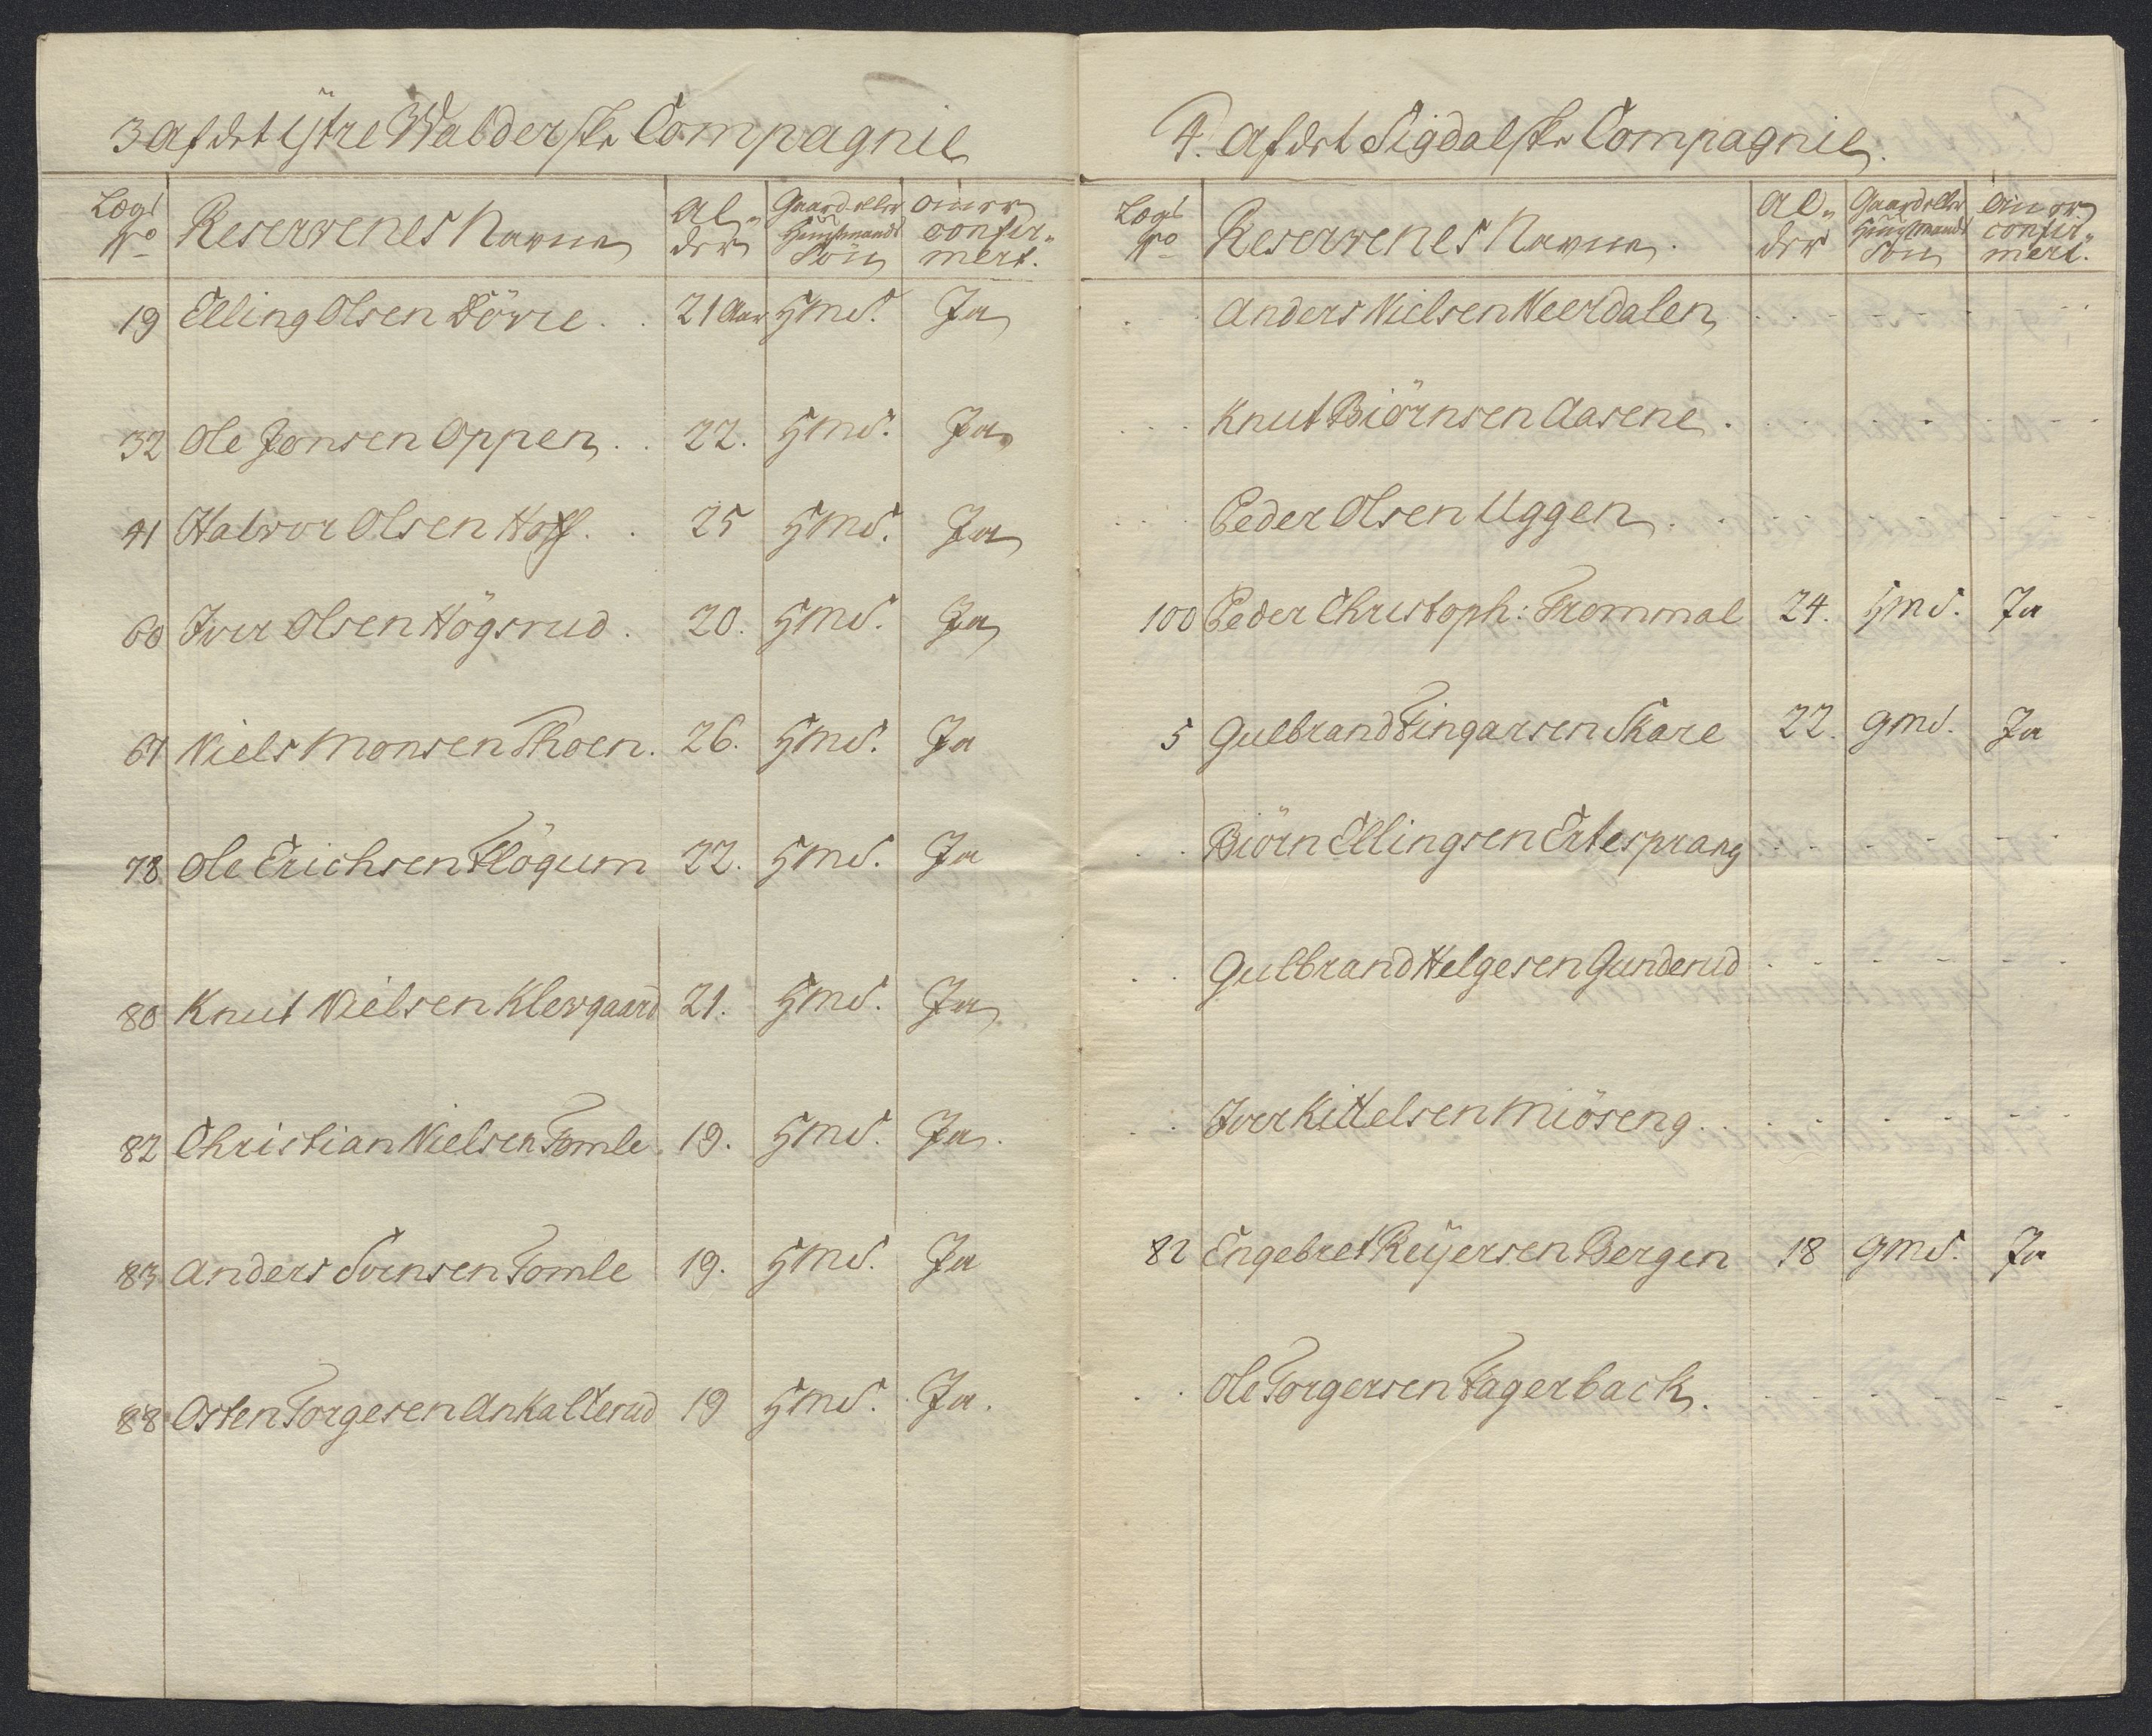 3 af det ÿtre Walderske Compagnie
Lægs No | Reservenes Navne | Al„der | Gaard eller Huusmands Sön | Om er confir„mert.
19 Elling Olsen Dövre . . 21 Aar HmS. Ja
32 Ole Jonsen Oppen . . 22. HmS. Ja
41 Halvor Olsen Hoff . . 25 HmS. Ja
60 Iver Olsen Högsrud . 20. HmS. Ja
67 Niels Monsen Thoen. 26. HmS. Ja
78 Ole Erichsen Flögum 22. HmS. Ja
80 Knut Nielsen Klevgaard 21. HmS. Ja
82 Christian Nielsen Tomle 19. HmS. Ja.
83 Anders Svensen Tomle 19. HmS. Ja
88 Osten Torgesen Ankalterud 19 HmS. Ja.
4. Af det Sigdalske Compagnie.
Lægs No | Reservenes Navne. | Al„der | Gaard eller Huusmands Sön | Om er confir„mert.
Anders Nielsen Neerdalen
Knut Biörnsen Aasene.
Peder Olsen Uggen
100 Peder Christoph: Frommal 24. HmS. Ja
5 Gulbrand Fingarsen Skare 22. GmS. Ja
Biörn Ellingsen Ertesprang
Gulbrand Helgesen Gunderud
Iver Kittelsen Miöseng
82 Engebret Reÿersen Bergen 18 GmS. Ja
Ole Torgersen Fagerback.